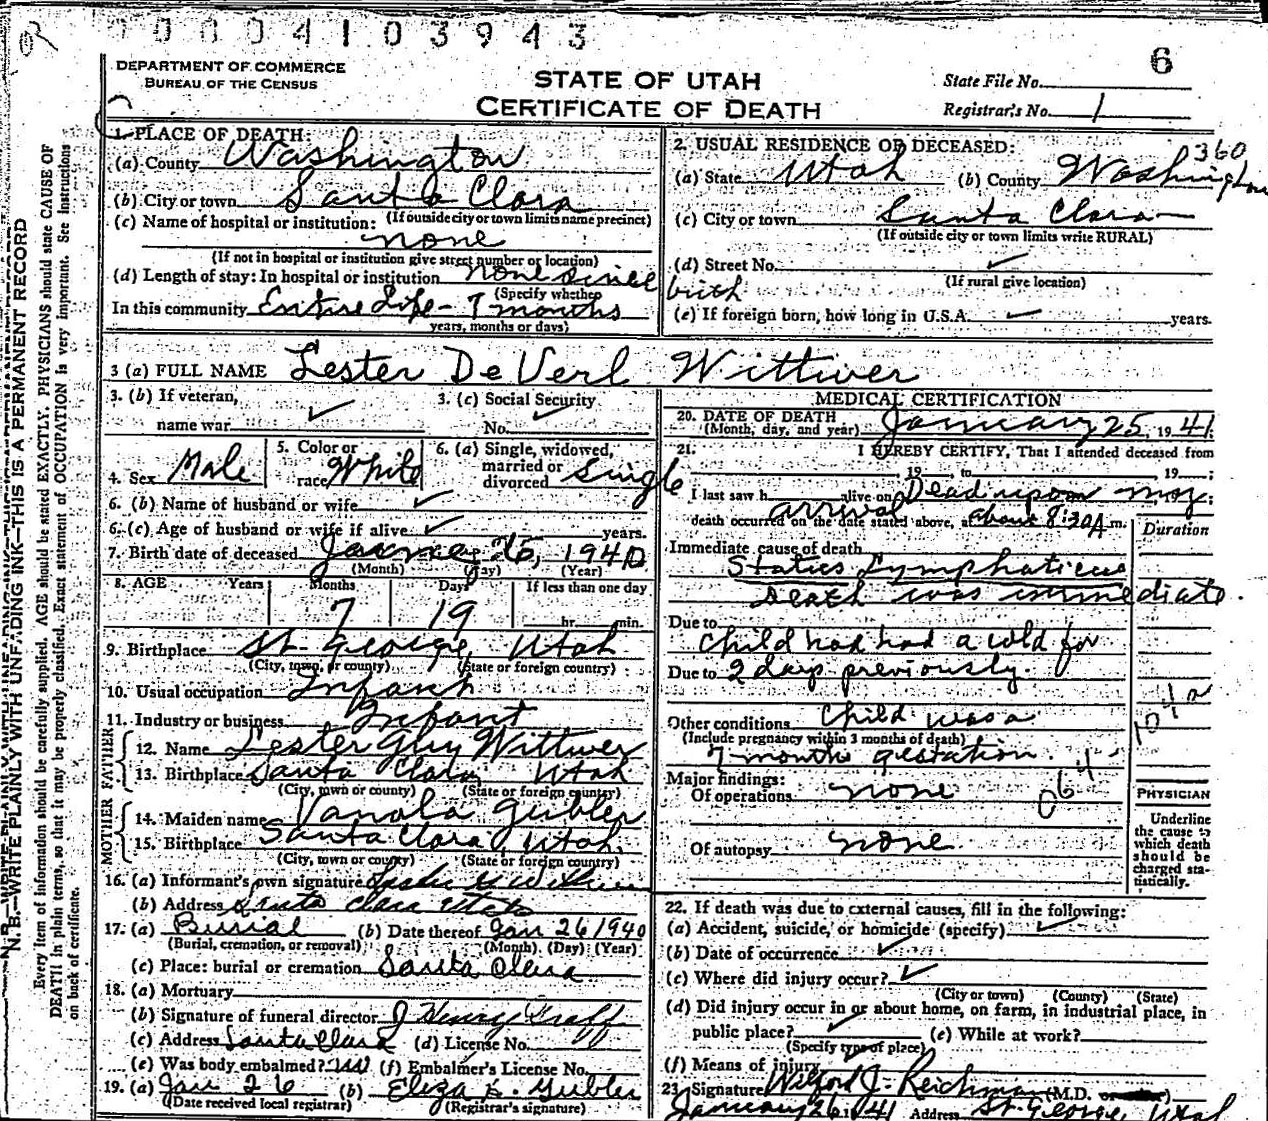 0 0 0 0 4 1 0 3 9 4 3
6
DEPARTMENT OF COMMERCE
BUREAU OF THE CENSUS
STATE OF UTAH
CERTIFICATE OF DEATH
State File No.
Registrar's No. 1
N.B.—WRITE PLAINLY WITH UNFADING INK—THIS IS A PERMANENT RECORD
Every item of information should be carefully supplied. AGE should be stated EXACTLY. PHYSICIANS should state CAUSE OF
DEATH in plain terms, so that it may be properly classified. Exact statement of OCCUPATION is very important. See Instructions
on back of certificate.
1. PLACE OF DEATH:
(a) County Washington
(b) City or town Santa Clara
(If outside city or town limits name precinct)
(c) Name of hospital or institution:
none
(If not in hospital or institution give street number or location)
(d) Length of stay: In hospital or institution none since birth
(Specify whether
In this community Entire Life - 7 months
years, months or days)
2. USUAL RESIDENCE OF DECEASED:
360
(a) State Utah (b) County Washington
(c) City or town Santa Clara
(If outside city or town limits write RURAL)
(d) Street No. ✓
(If rural give location)
(e) If foreign born, how long in U.S.A. ✓ years.
3 (a) FULL NAME Lester DeVerl Wittwer
3. (b) If veteran, name war ✓
3. (c) Social Security No. ✓
4. Sex Male
5. Color or race White
6. (a) Single, widowed, married or divorced Single
6. (b) Name of husband or wife ✓
6. (c) Age of husband or wife if alive ✓ years.
7. Birth date of deceased January 25, 1940
(Month) (Day) (Year)
8. AGE Years Months Days If less than one day
7 19 hr. min.
9. Birthplace St. George, Utah
(City, town, or county) (State or foreign country)
10. Usual occupation Infant
11. Industry or business Infant
FATHER
12. Name Lester Guy Wittwer
13. Birthplace Santa Clara, Utah
(City, town or county) (State or foreign country)
MOTHER
14. Maiden name Vanola Gubler
15. Birthplace Santa Clara, Utah.
(City, town or county) (State or foreign country)
16. (a) Informant's own signature Wittwer
(b) Address Santa Clara Utah
17. (a) Burial (b) Date thereof Jan 26 1940
(Burial, cremation, or removal) (Month) (Day) (Year)
(c) Place: burial or cremation Santa Clara
18. (a) Mortuary
(b) Signature of funeral director J Henry Graff
(c) Address Santa Clara (d) License No.
(e) Was body embalmed? (f) Embalmer's License No.
19. (a) Jan 26 (b) Eliza K. Gubler
(Date received local registrar) (Registrar's signature)
MEDICAL CERTIFICATION
20. DATE OF DEATH January 25, 1941
(Month, day, and year)
21. I HEREBY CERTIFY, That I attended deceased from
19 to 19 ;
I last saw h alive on Dead upon my arrival;
death occurred on the date stated above, at about 8:30 A m.
Duration
Immediate cause of death
Status Lymphaticus
Death was immediate.
Due to child had had a cold for
Due to 2 days previously.
104a
Other conditions Child was a
(Include pregnancy within 3 months of death)
7 months gestation.
064
Major findings:
Of operations none
Of autopsy none
PHYSICIAN
Underline
the cause to
which death
should be
charged sta-
tistically.
22. If death was due to external causes, fill in the following:
(a) Accident, suicide, or homicide (specify) ✓
(b) Date of occurrence ✓
(c) Where did injury occur? ✓
(City or town) (County) (State)
(d) Did injury occur in or about home, on farm, in industrial place, in
public place? ✓ (e) While at work?
(Specify type of place)
(f) Means of injury
23. Signature Wilford J. Reichman (M.D. )
January 26 1941 Address St. George, Utah